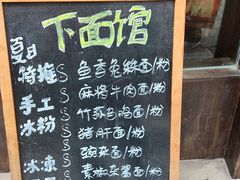 下面馆
夏日
特推 S 鱼香兔粒面/粉
手工 S 麻将牛肉面/粉
冰粉 S 竹荪乌鸡面/粉
S 猪肝面/粉
冰凍 S 颈杂面/粉
S 素椒杂酱面/粉